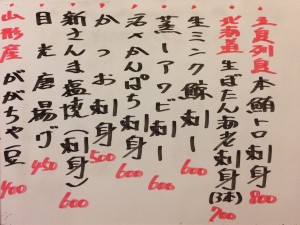 五島列島 本鮪トロ刺身 800
北海道 生ぼたん海老刺身(3本) 700
生ミンク鯨刺し 600
蒸しアワビ刺し 600
活〆かんぱち刺身 600
かつお刺身 500
新さんま塩焼(刺身) 600
目光唐揚げ 450
山形産 だだちゃ豆 400